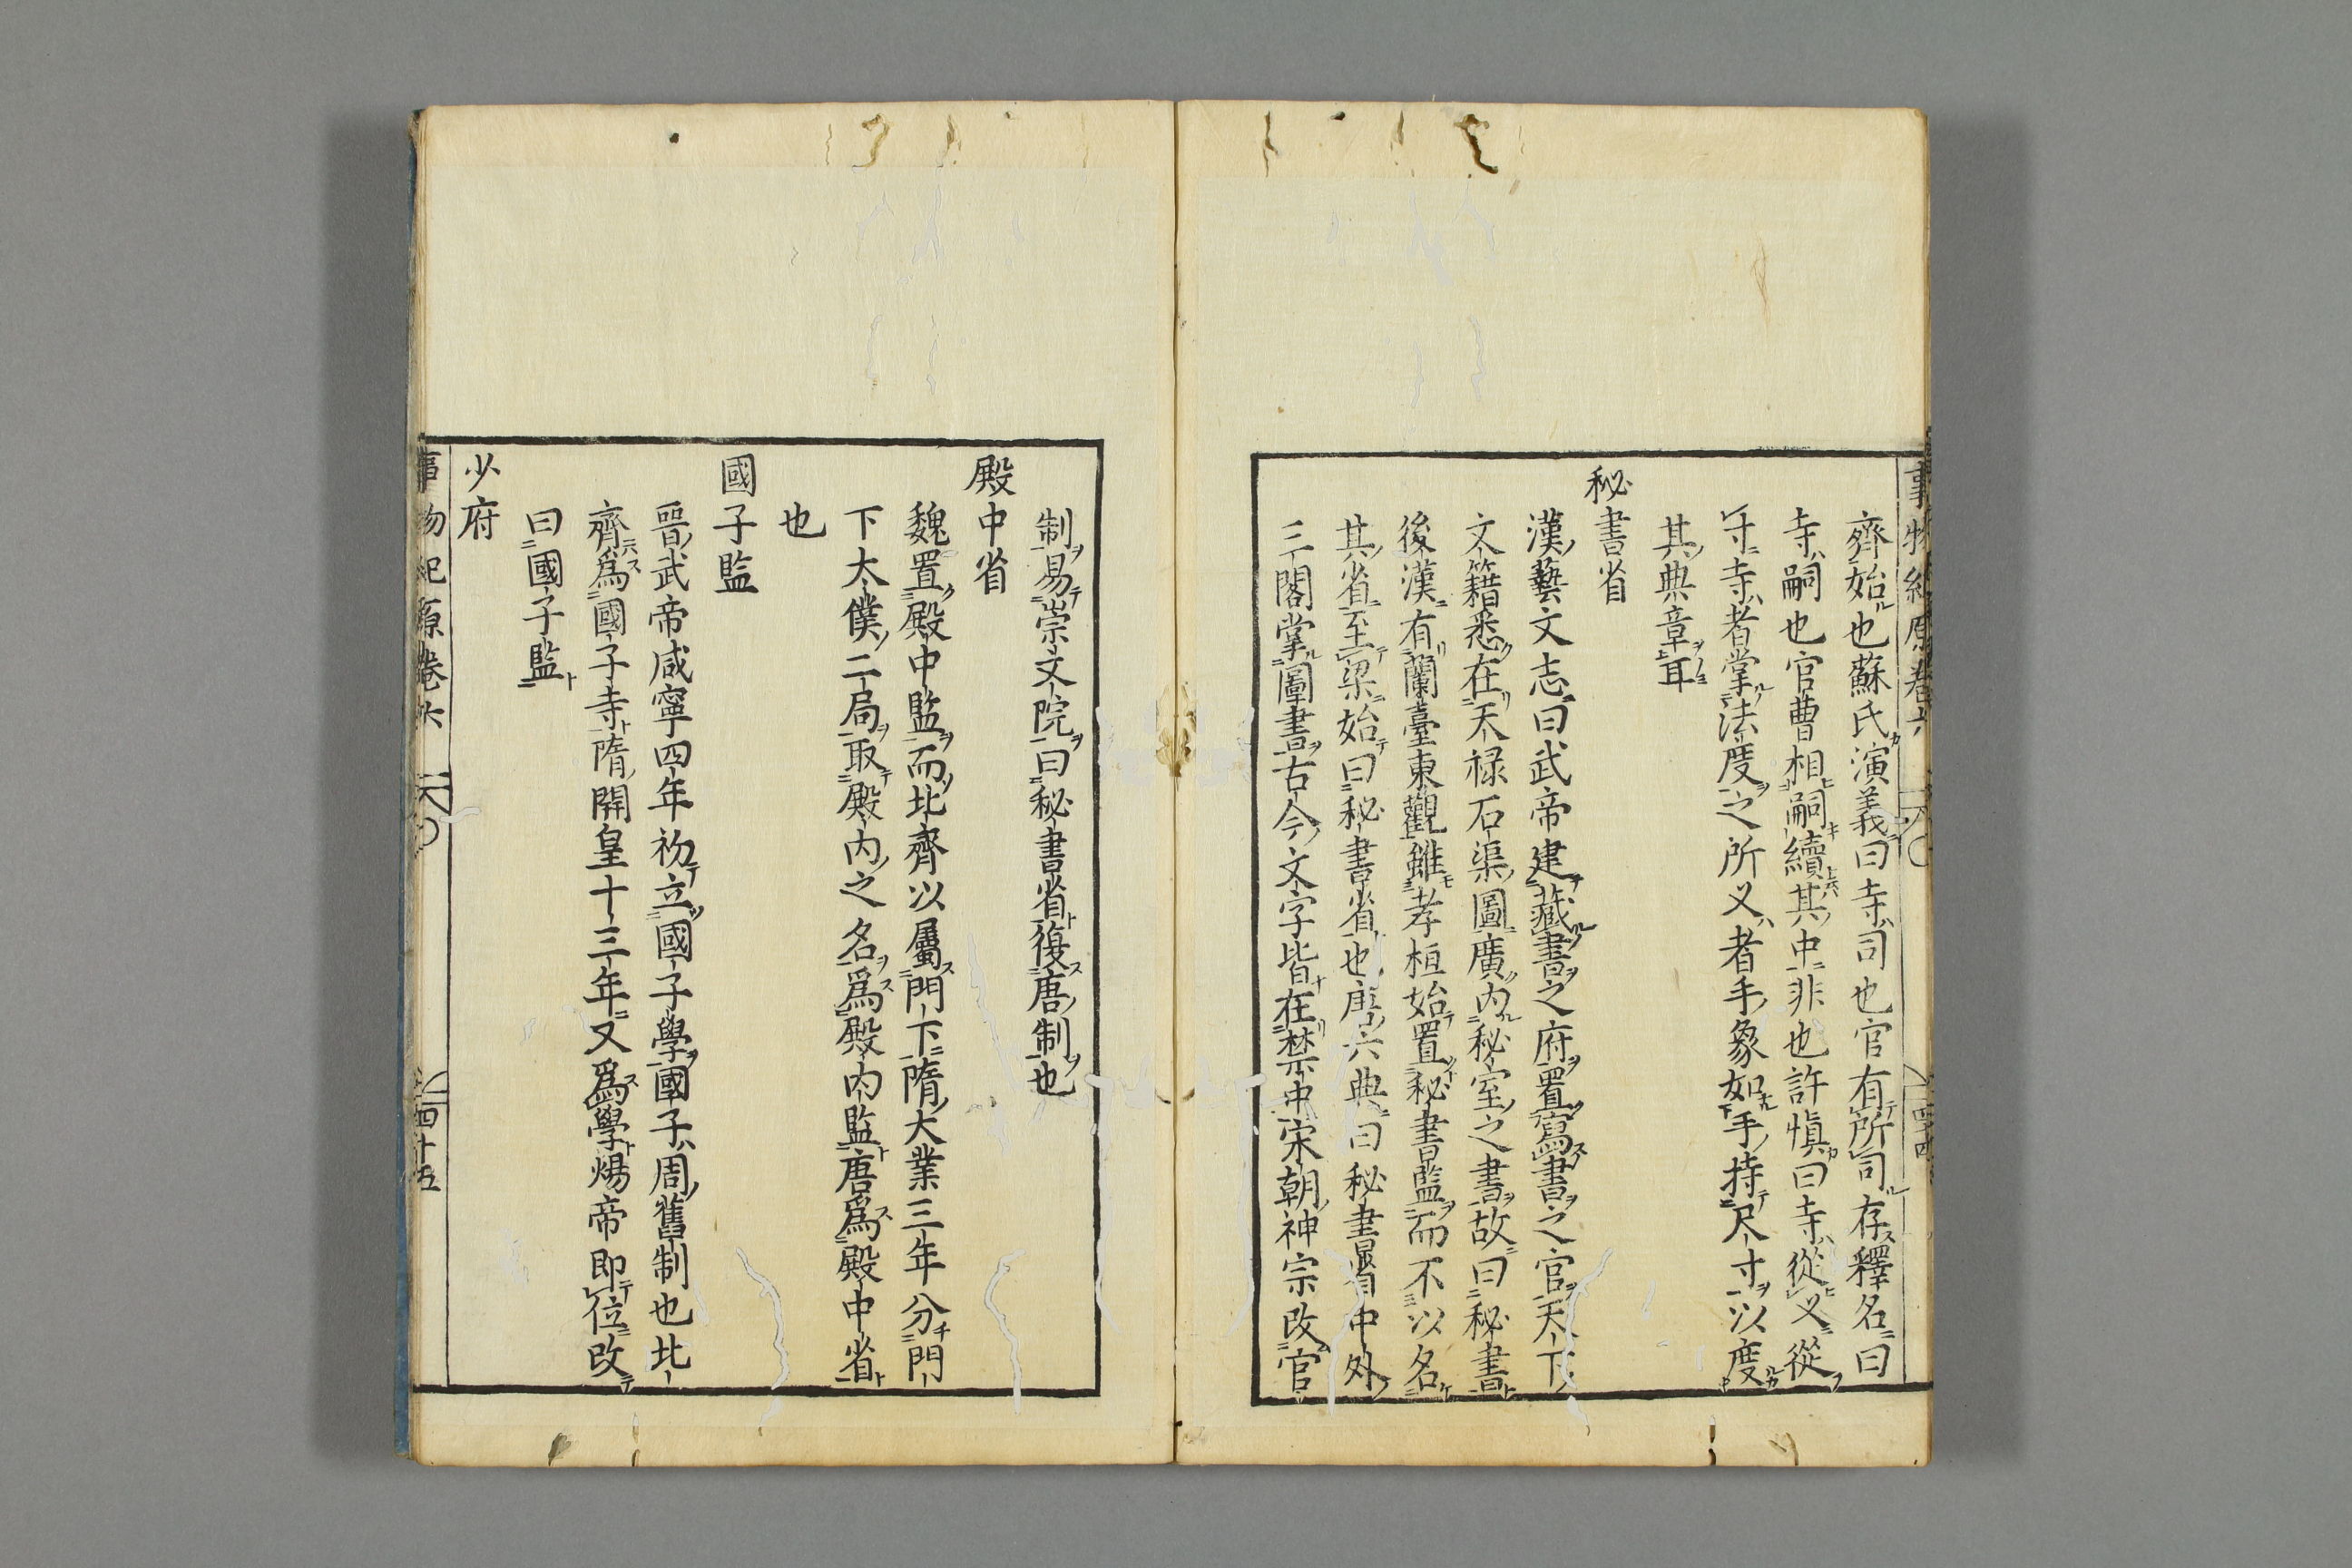 齊始也蘇氏演義曰寺司也官有所司存釋名曰
寺嗣也官曹相嗣續其中非也許愼曰寺從又從
寸寺者掌法度之所又者手象如手持尺寸以度
其典章耳
秘書省
漢藝文志曰武帝建藏書之府置寫書之官天下
文籍悉在天禄石渠圖廣内秘室之書故曰秘書
後漢有蘭臺東觀雖孝桓始置秘書監而不以名
其省至梁始曰秘書省也唐六典曰秘書省中外
三閣掌圖書古今文字皆在禁中宋朝神宗改官
制易崇文院曰秘書省復唐制也
殿中省
魏置殿中監而北齊以屬門下隋大業三年分門
下太僕二局取殿内之名爲殿内監唐爲殿中省
也
國子監
晉武帝咸寧四年初立國子學國子周舊制也北
齊爲國子寺隋開皇十三年又爲學煬帝即位改
曰國子監
少府
事物紀原卷六 四十五